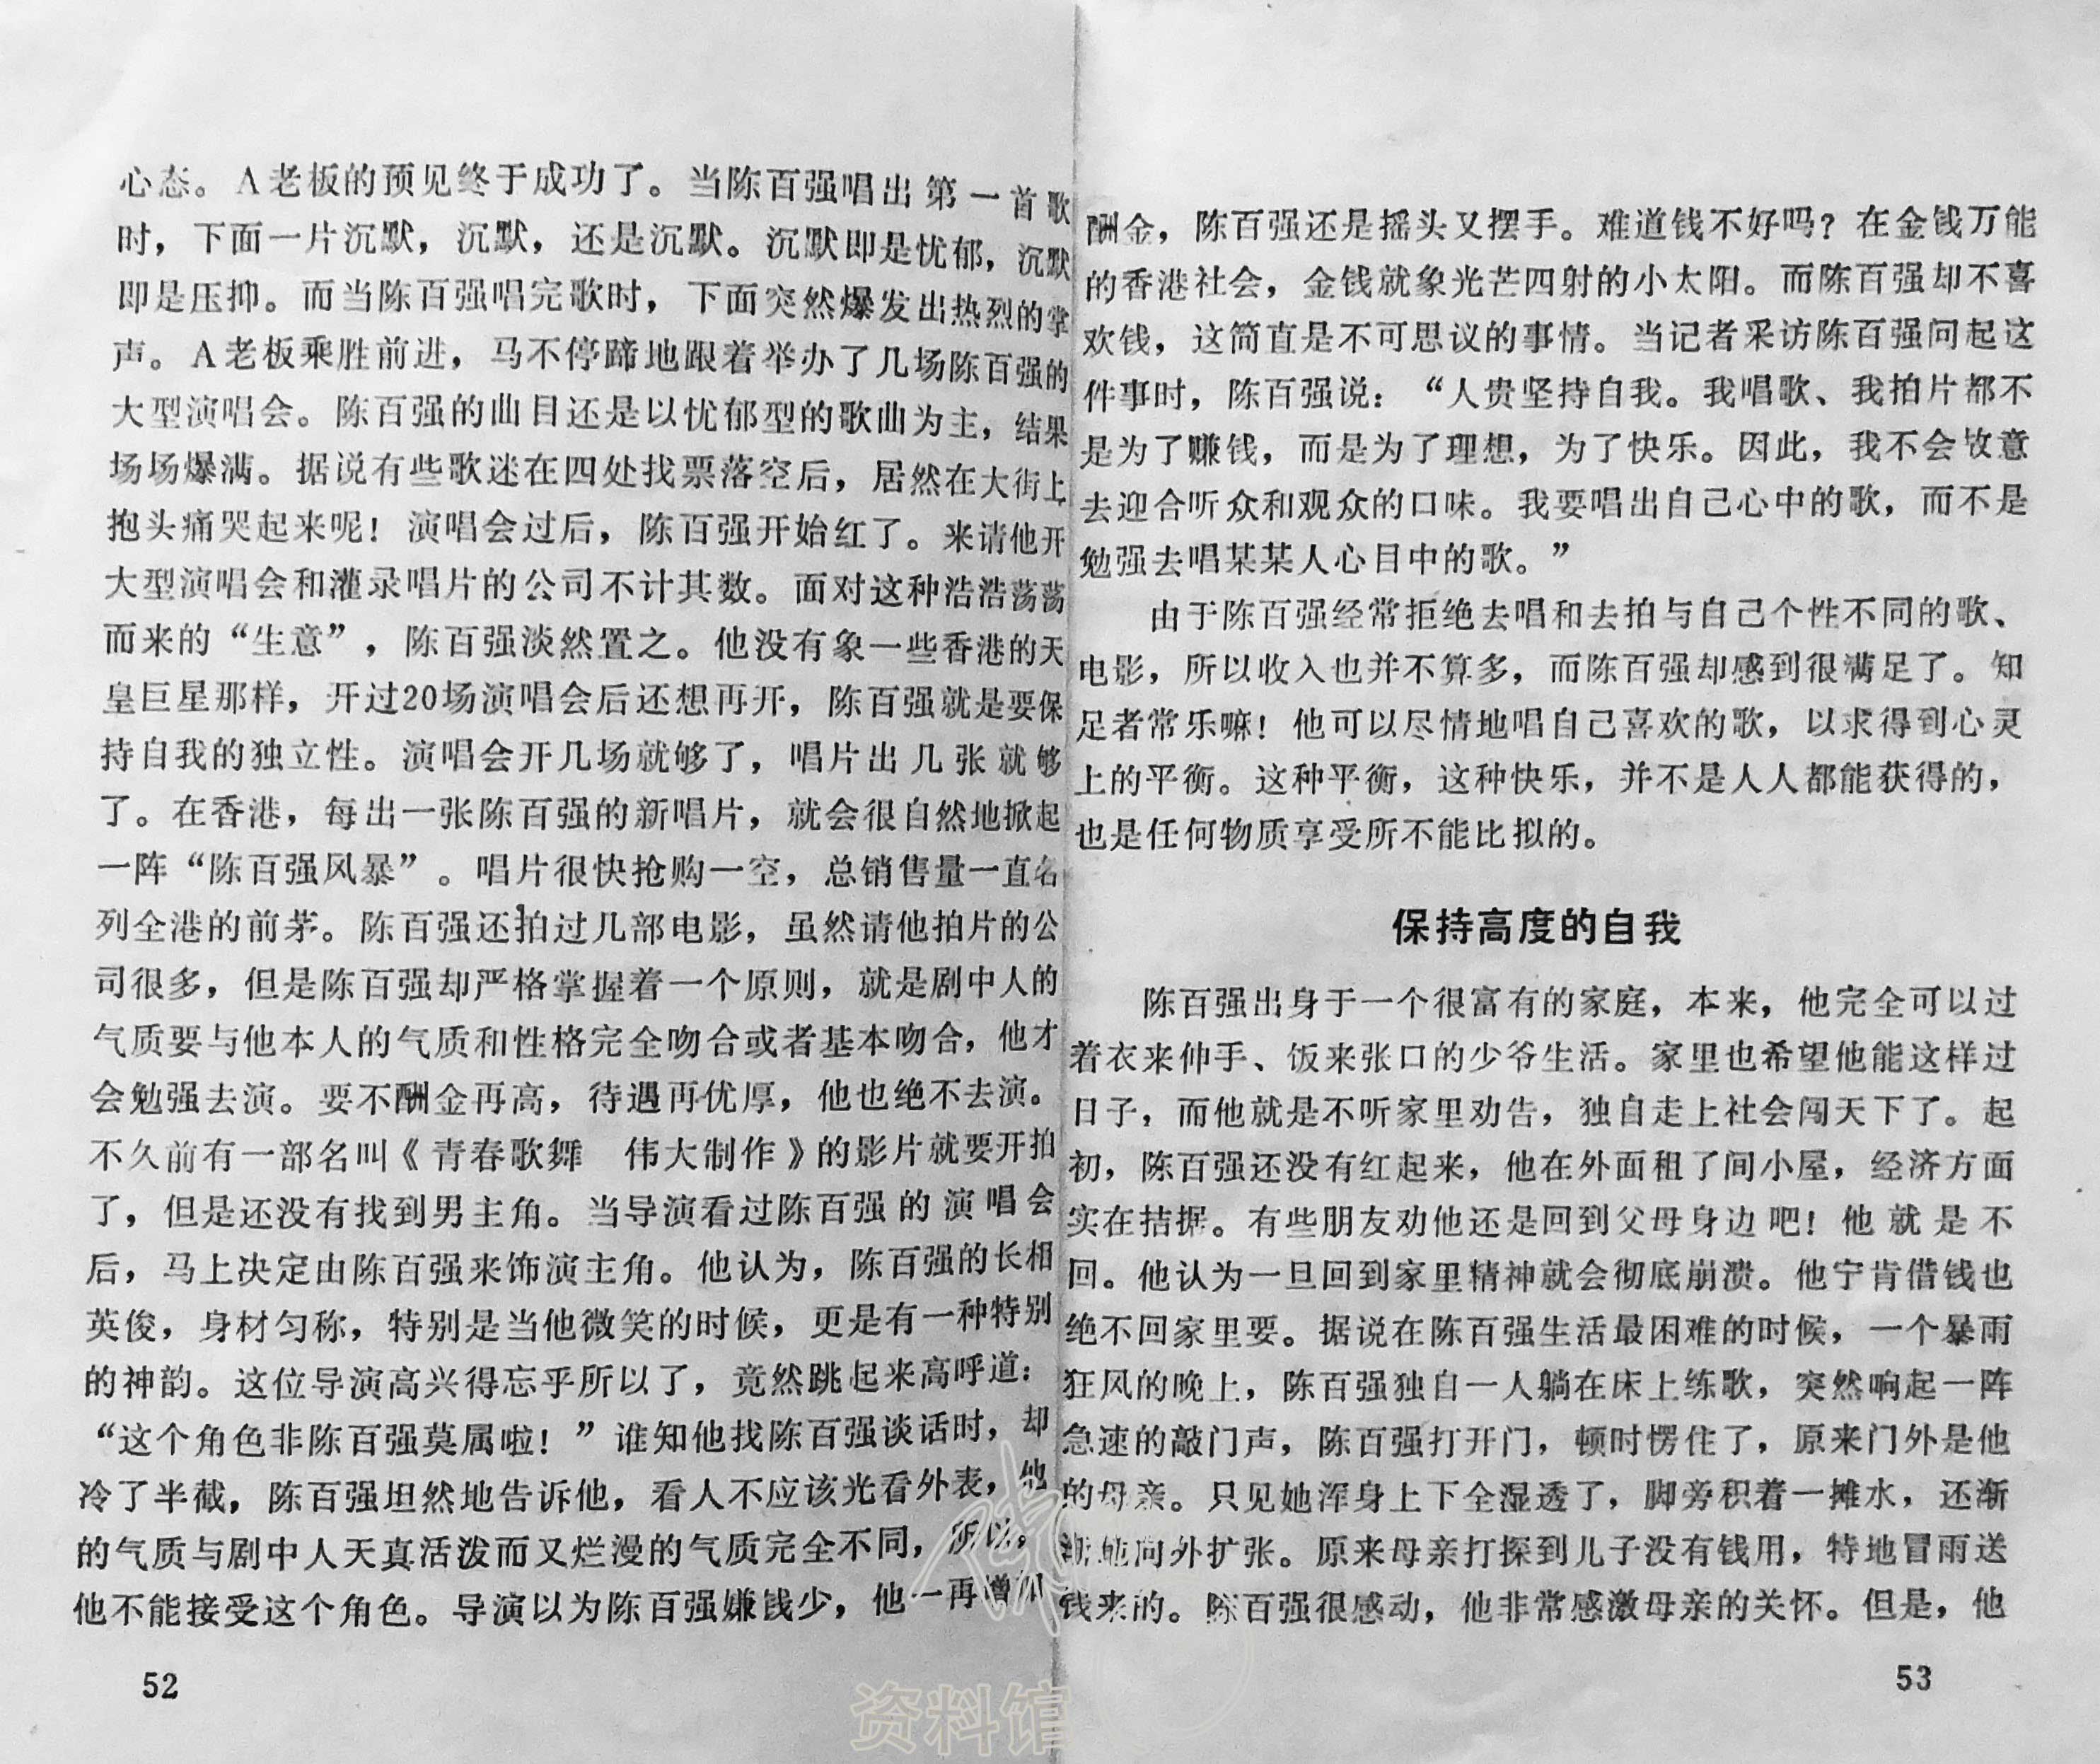 心态。A老板的预见终于成功了。当陈百强唱出第一首歌
时，下面一片沉默，沉默，还是沉默。沉默即是忧郁，沉默
即是压抑。而当陈百强唱完歌时，下面突然爆发出热烈的掌
声。A老板乘胜前进，马不停蹄地跟着举办了几场陈百强的
大型演唱会。陈百强的曲目还是以忧郁型的歌曲为主，结果
场场爆满。据说有些歌迷在四处找票落空后，居然在大街上
抱头痛哭起来呢！演唱会过后，陈百强开始红了。来请他开
大型演唱会和灌录唱片的公司不计其数。面对这种浩浩荡荡
而来的“生意”，陈百强淡然置之。他没有象一些香港的天
皇巨星那样，开过20场演唱会后还想再开，陈百强就是要保
持自我的独立性。演唱会开几场就够了，唱片出几张就够
了。在香港，每出一张陈百强的新唱片，就会很自然地掀起
一阵“陈百强风暴”。唱片很快抢购一空，总销售量一直名
列全港的前茅。陈百强还拍过几部电影，虽然请他拍片的公
司很多，但是陈百强却严格掌握着一个原则，就是剧中人的
气质要与他本人的气质和性格完全吻合或者基本吻合，他才
会勉强去演。要不酬金再高，待遇再优厚，他也绝不去演。
不久前有一部名叫《青春歌舞　伟大制作》的影片就要开拍
了，但是还没有找到男主角。当导演看过陈百强的演唱会
后，马上决定由陈百强来饰演主角。他认为，陈百强的长相
英俊，身材匀称，特别是当他微笑的时候，更是有一种特别
的神韵。这位导演高兴得忘乎所以了，竟然跳起来高呼道：
“这个角色非陈百强莫属啦！”谁知他找陈百强谈话时，却
冷了半截，陈百强坦然地告诉他，看人不应该光看外表，他
的气质与剧中人天真活泼而又烂漫的气质完全不同，所以，
他不能接受这个角色。导演以为陈百强嫌钱少，他一再增加
52
酬金，陈百强还是摇头又摆手。难道钱不好吗？在金钱万能
的香港社会，金钱就象光芒四射的小太阳。而陈百强却不喜
欢钱，这简直是不可思议的事情。当记者采访陈百强问起这
件事时，陈百强说：“人贵坚持自我。我唱歌、我拍片都不
是为了赚钱，而是为了理想，为了快乐。因此，我不会故意
去迎合听众和观众的口味。我要唱出自己心中的歌，而不是
勉强去唱某某人心目中的歌。”
由于陈百强经常拒绝去唱和去拍与自己个性不同的歌、
电影，所以收入也并不算多，而陈百强却感到很满足了。知
足者常乐嘛！他可以尽情地唱自己喜欢的歌，以求得到心灵
上的平衡。这种平衡，这种快乐，并不是人人都能获得的，
也是任何物质享受所不能比拟的。
保持高度的自我
陈百强出身于一个很富有的家庭，本来，他完全可以过
着衣来伸手、饭来张口的少爷生活。家里也希望他能这样过
日子，而他就是不听家里劝告，独自走上社会闯天下了。起
初，陈百强还没有红起来，他在外面租了间小屋，经济方面
实在拮据。有些朋友劝他还是回到父母身边吧！他就是不
回。他认为一旦回到家里精神就会彻底崩溃。他宁肯借钱也
绝不回家里要。据说在陈百强生活最困难的时候，一个暴雨
狂风的晚上，陈百强独自一人躺在床上练歌，突然响起一阵
急速的敲门声，陈百强打开门，顿时愣住了，原来门外是他
的母亲。只见她浑身上下全湿透了，脚旁积着一摊水，还渐
渐地向外扩张。原来母亲打探到儿子没有钱用，特地冒雨送
钱来的。陈百强很感动，他非常感激母亲的关怀。但是，他
53
资料馆